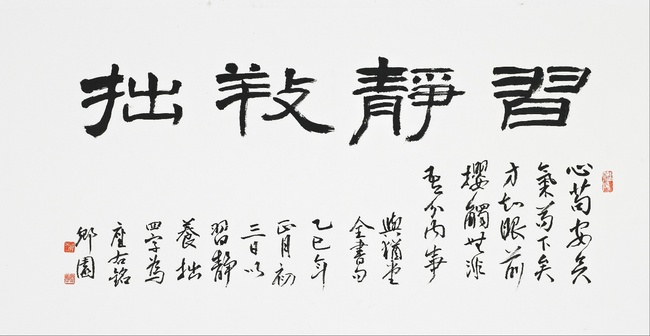 習靜養拙
心苟安矣
氣苟下矣
方知眼前
攖觸無非
吾分內事
與猶堂
全書句
乙巳年
正月初
三日以
習靜
養拙
四字爲
座右銘
鄉園